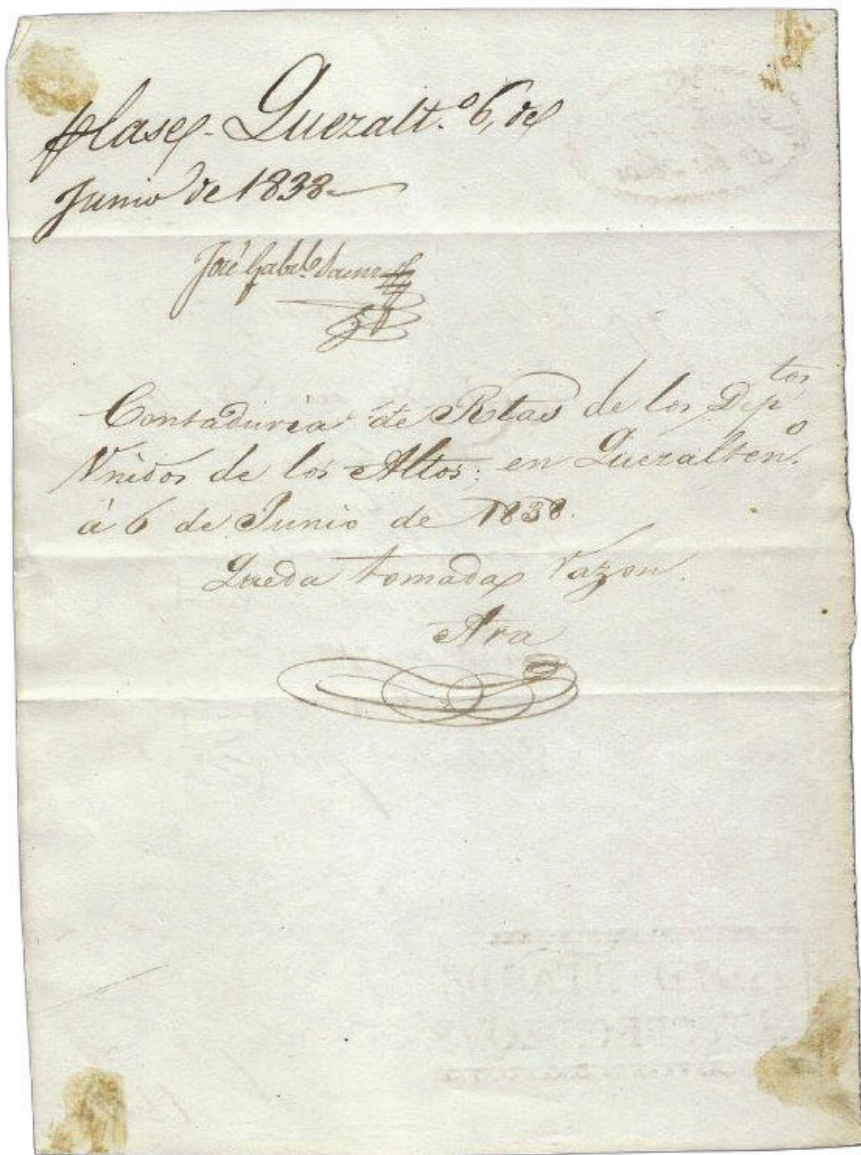 Quezalt.º 6, de
Junio de 1838
José Gab.l
Contaduria de Rtas de los Dep.tos
Vnidos de los Altos: en Quezalten.o
á 6 de Junio de 1838.
Queda tomada razon.
Ara